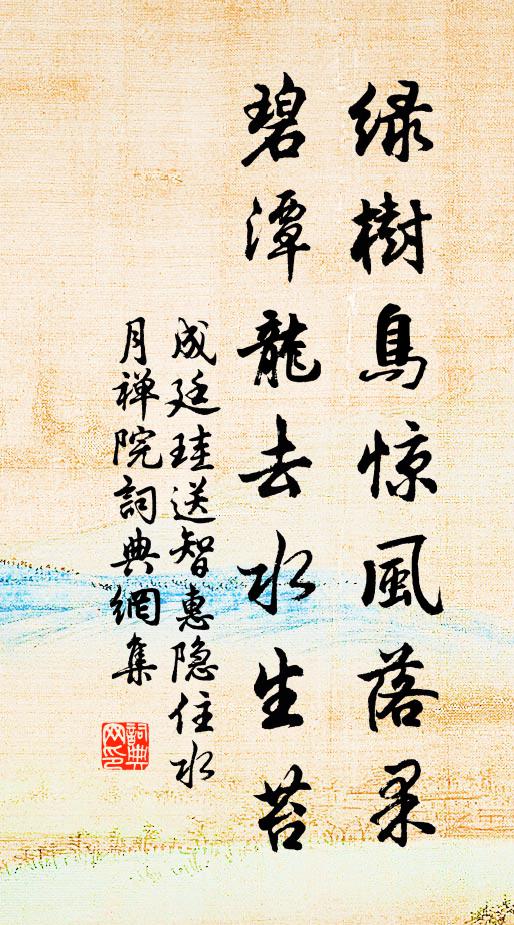 绿樹鳥惊風落果
碧潭龍去水生苔
成廷珪送智惠隐住水
月禅院詞典網集
詞典
网印